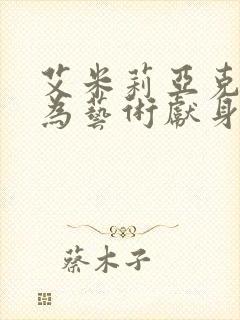 艾米莉亞克
為藝術獻身
蔡木子